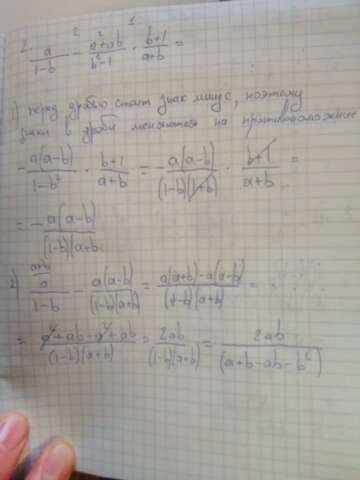 2. a/(1-b) - (a²+ab)/(b²-1) · (b+1)/(a+b) =
1) перед дробью стоит знак минус, поэтому
знаки в дроби меняются на противоположные
- a(a-b)/(1-b²) · (b+1)/(a+b) = - a(a-b)/((1-b)(1+b)) · (b+1)/(a+b) =
= - a(a-b)/((1-b)(a+b)
2) a+b a/(1-b) - a(a-b)/((1-b)(a+b)) = (a(a+b)-a(a-b))/((1-b)(a+b)) =
= (a²+ab-a²+ab)/((1-b)(a+b)) = 2ab/((1-b)(a+b)) = 2ab/(a+b-ab-b²)